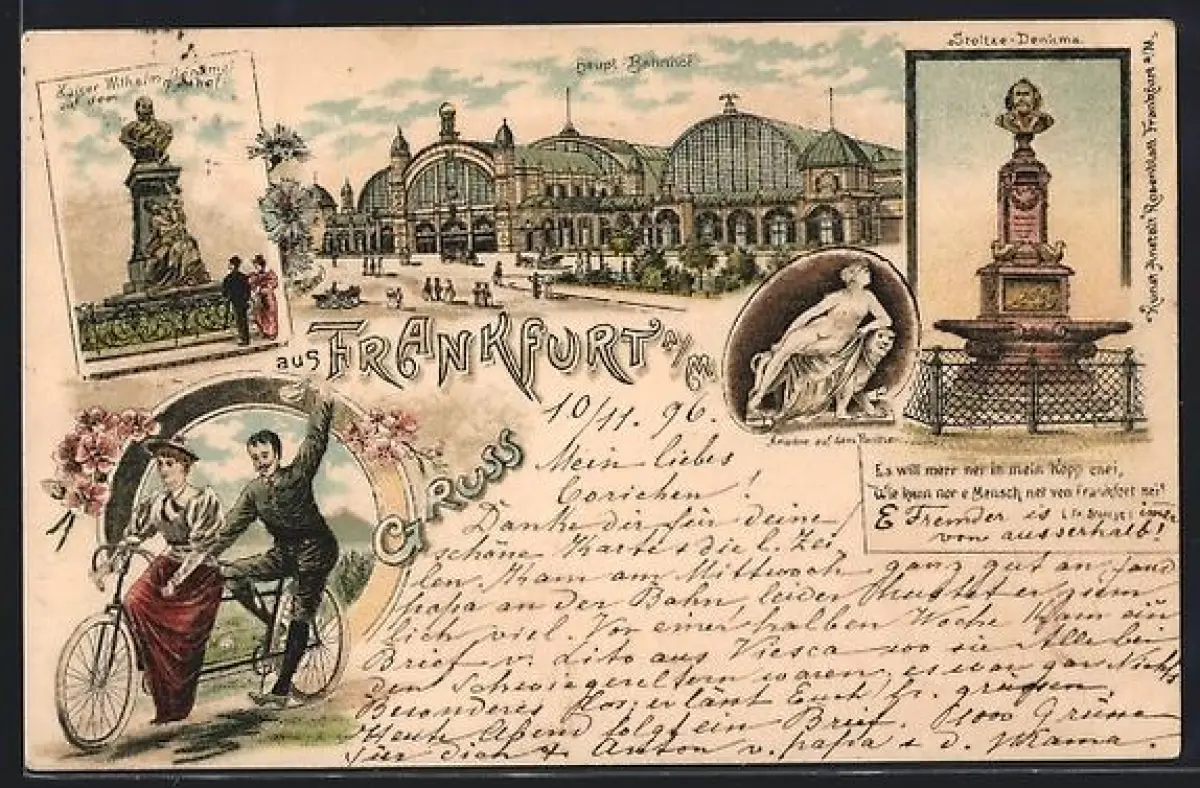 Kaiser Wilhelm Denkmal
auf dem
Haupt-Bahnhof
Stoltze-Denkmal
Kunst-Anstalt Rosenblatt Frankfurt a/M.
Gruss
aus Frankfurt a/M.
Ariadne auf dem Panther
Es will merr net in mein Kopp enei,
Wie kann nor e Mensch net von Frankfort sei!
(Fr. Stoltze)
E Fremder is immer
von ausserhalb!
10/11. 96.
Mein liebes
Corichen!
Danke dir für deine
schöne Karte & die l. Zei-
len. Kam am Mittwoch ganz gut an, fand
papa an der Bahn, leider hustet er ziem
lich viel. Vor einer halben Woche kam ein
Brief v. Lito aus Viesca wo sie Alle bei
den Schwiegereltern waren, es war gar Nichts
Besonderes los, er lässt Euch grüssen.
Heute Abend folgt ein Brief. 1000 Grüsse
für dich & Anton v. papa & d. Mama.